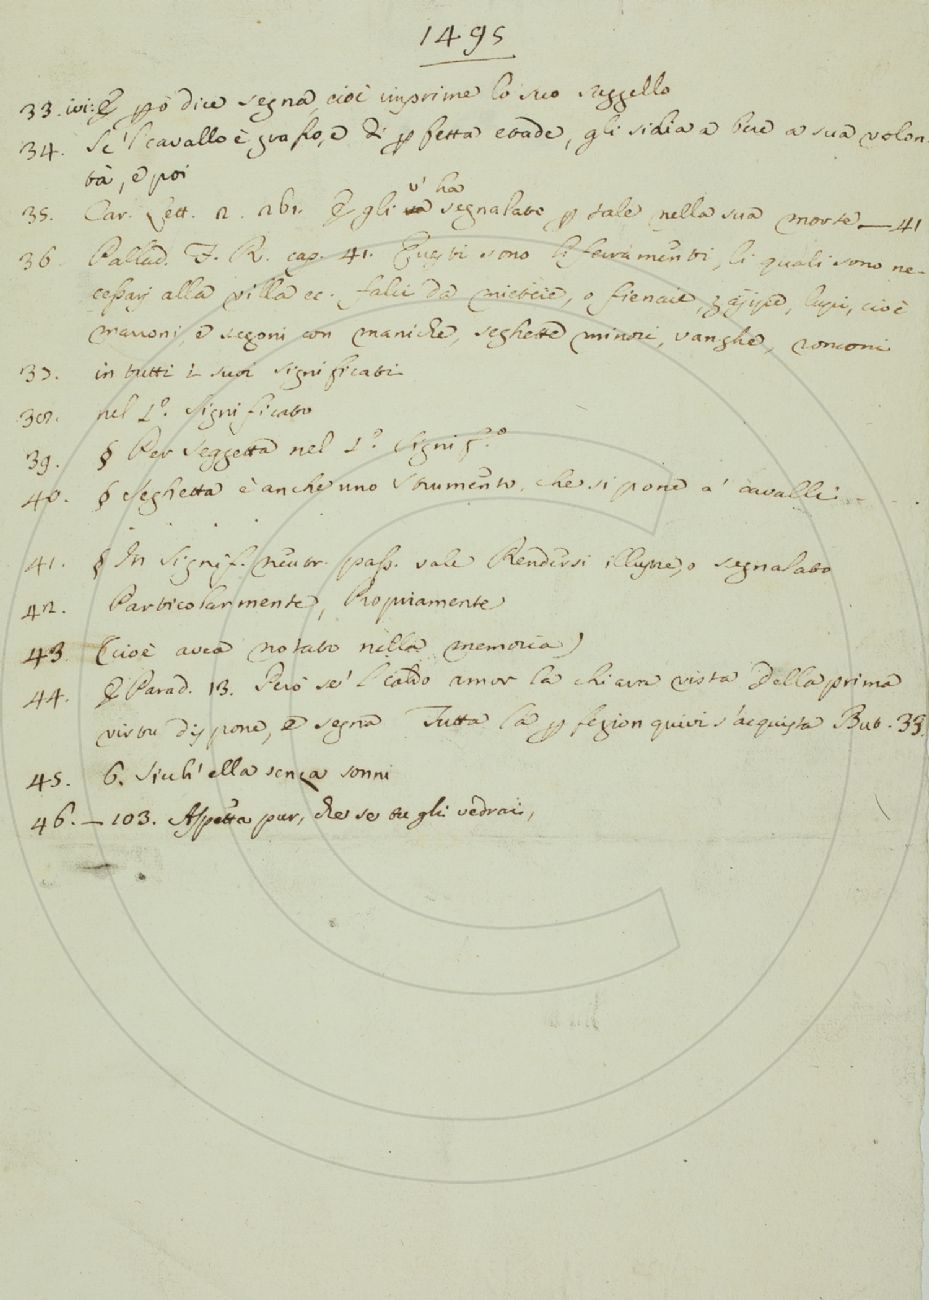 1495
33. ivi: E però dice segna, cioè imprime lo suo suggello
34. Se 'l cavallo è grasso, e di perfetta etade, gli si dia a bere a sua volon-
tà, e poi
v' ha
35. Car. Lett. 2. 261. Egli segnalato per tale nella sua morte — 41
36. Pallad. F. R. cap. 41. Questi sono li ferramenti, li quali sono ne-
cessarj alla villa ec. falci da mietere, o fienaie, zappe, lupi, cioè
marroni, e segoni con maniche, seghette minori, vanghe, ronconi
37. in tutti i suoi significati
38. nel 1.° Significato
39. § Per Seggetta nel 1.° Signif.°
40. § Seghetta è anche uno Strumento, che si pone a' cavalli:
41. § In Signif. neutr. pass. vale Rendersi illustre, o segnalato
42. Particolarmente, Propriamente
43 (cioè avea notato nella memoria)
44. E Parad. 13. Però se 'l caldo amor la chiara vista Della prima
virtù dispone, e segna Tutta la perfezion quivi s'acquista But. 33.
45. 6. Sicch' ella senza sonni
46. — 103. Aspetta pur, che se tu gli vedrai,